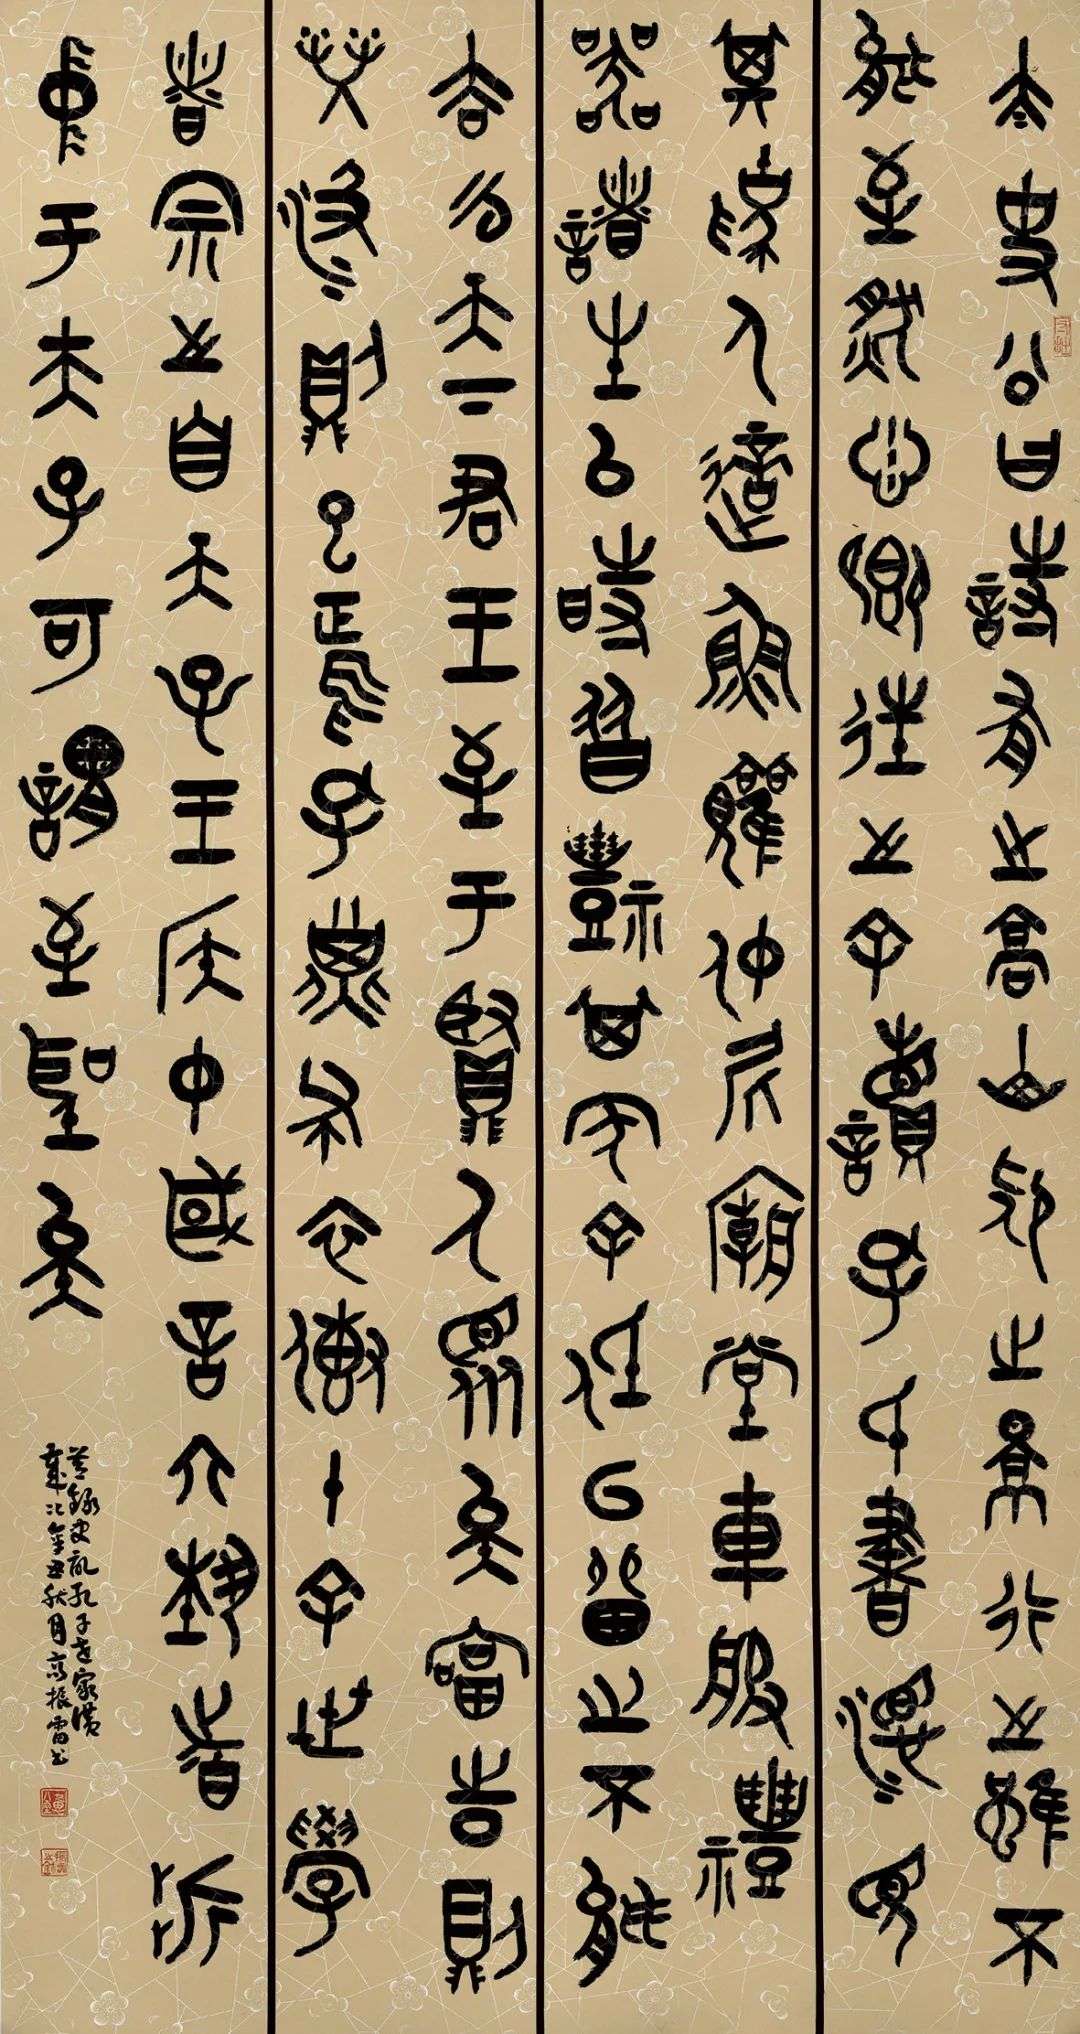 太史公曰詩有之高山卬止景行之雖不
能至然心鄉往之余讀孔氏書想見
其為人適魯觀仲尼廟堂車服禮
器諸生以時習禮其家余低回留之不能
去云天下君王至于賢人眾矣當時則
榮沒則已焉孔子布衣傳十余世學
者宗之自天子王侯中國言六藝者折
中于夫子可謂至聖矣
錄史記孔子世家贊
歲次辛丑秋月高振雷书